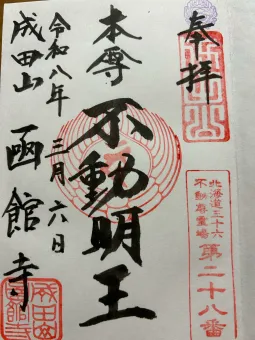 奉拝
北海道三十六
不動尊霊場
第二十八番
本尊
不動明王
令和八年三月六日
成田山 函館寺